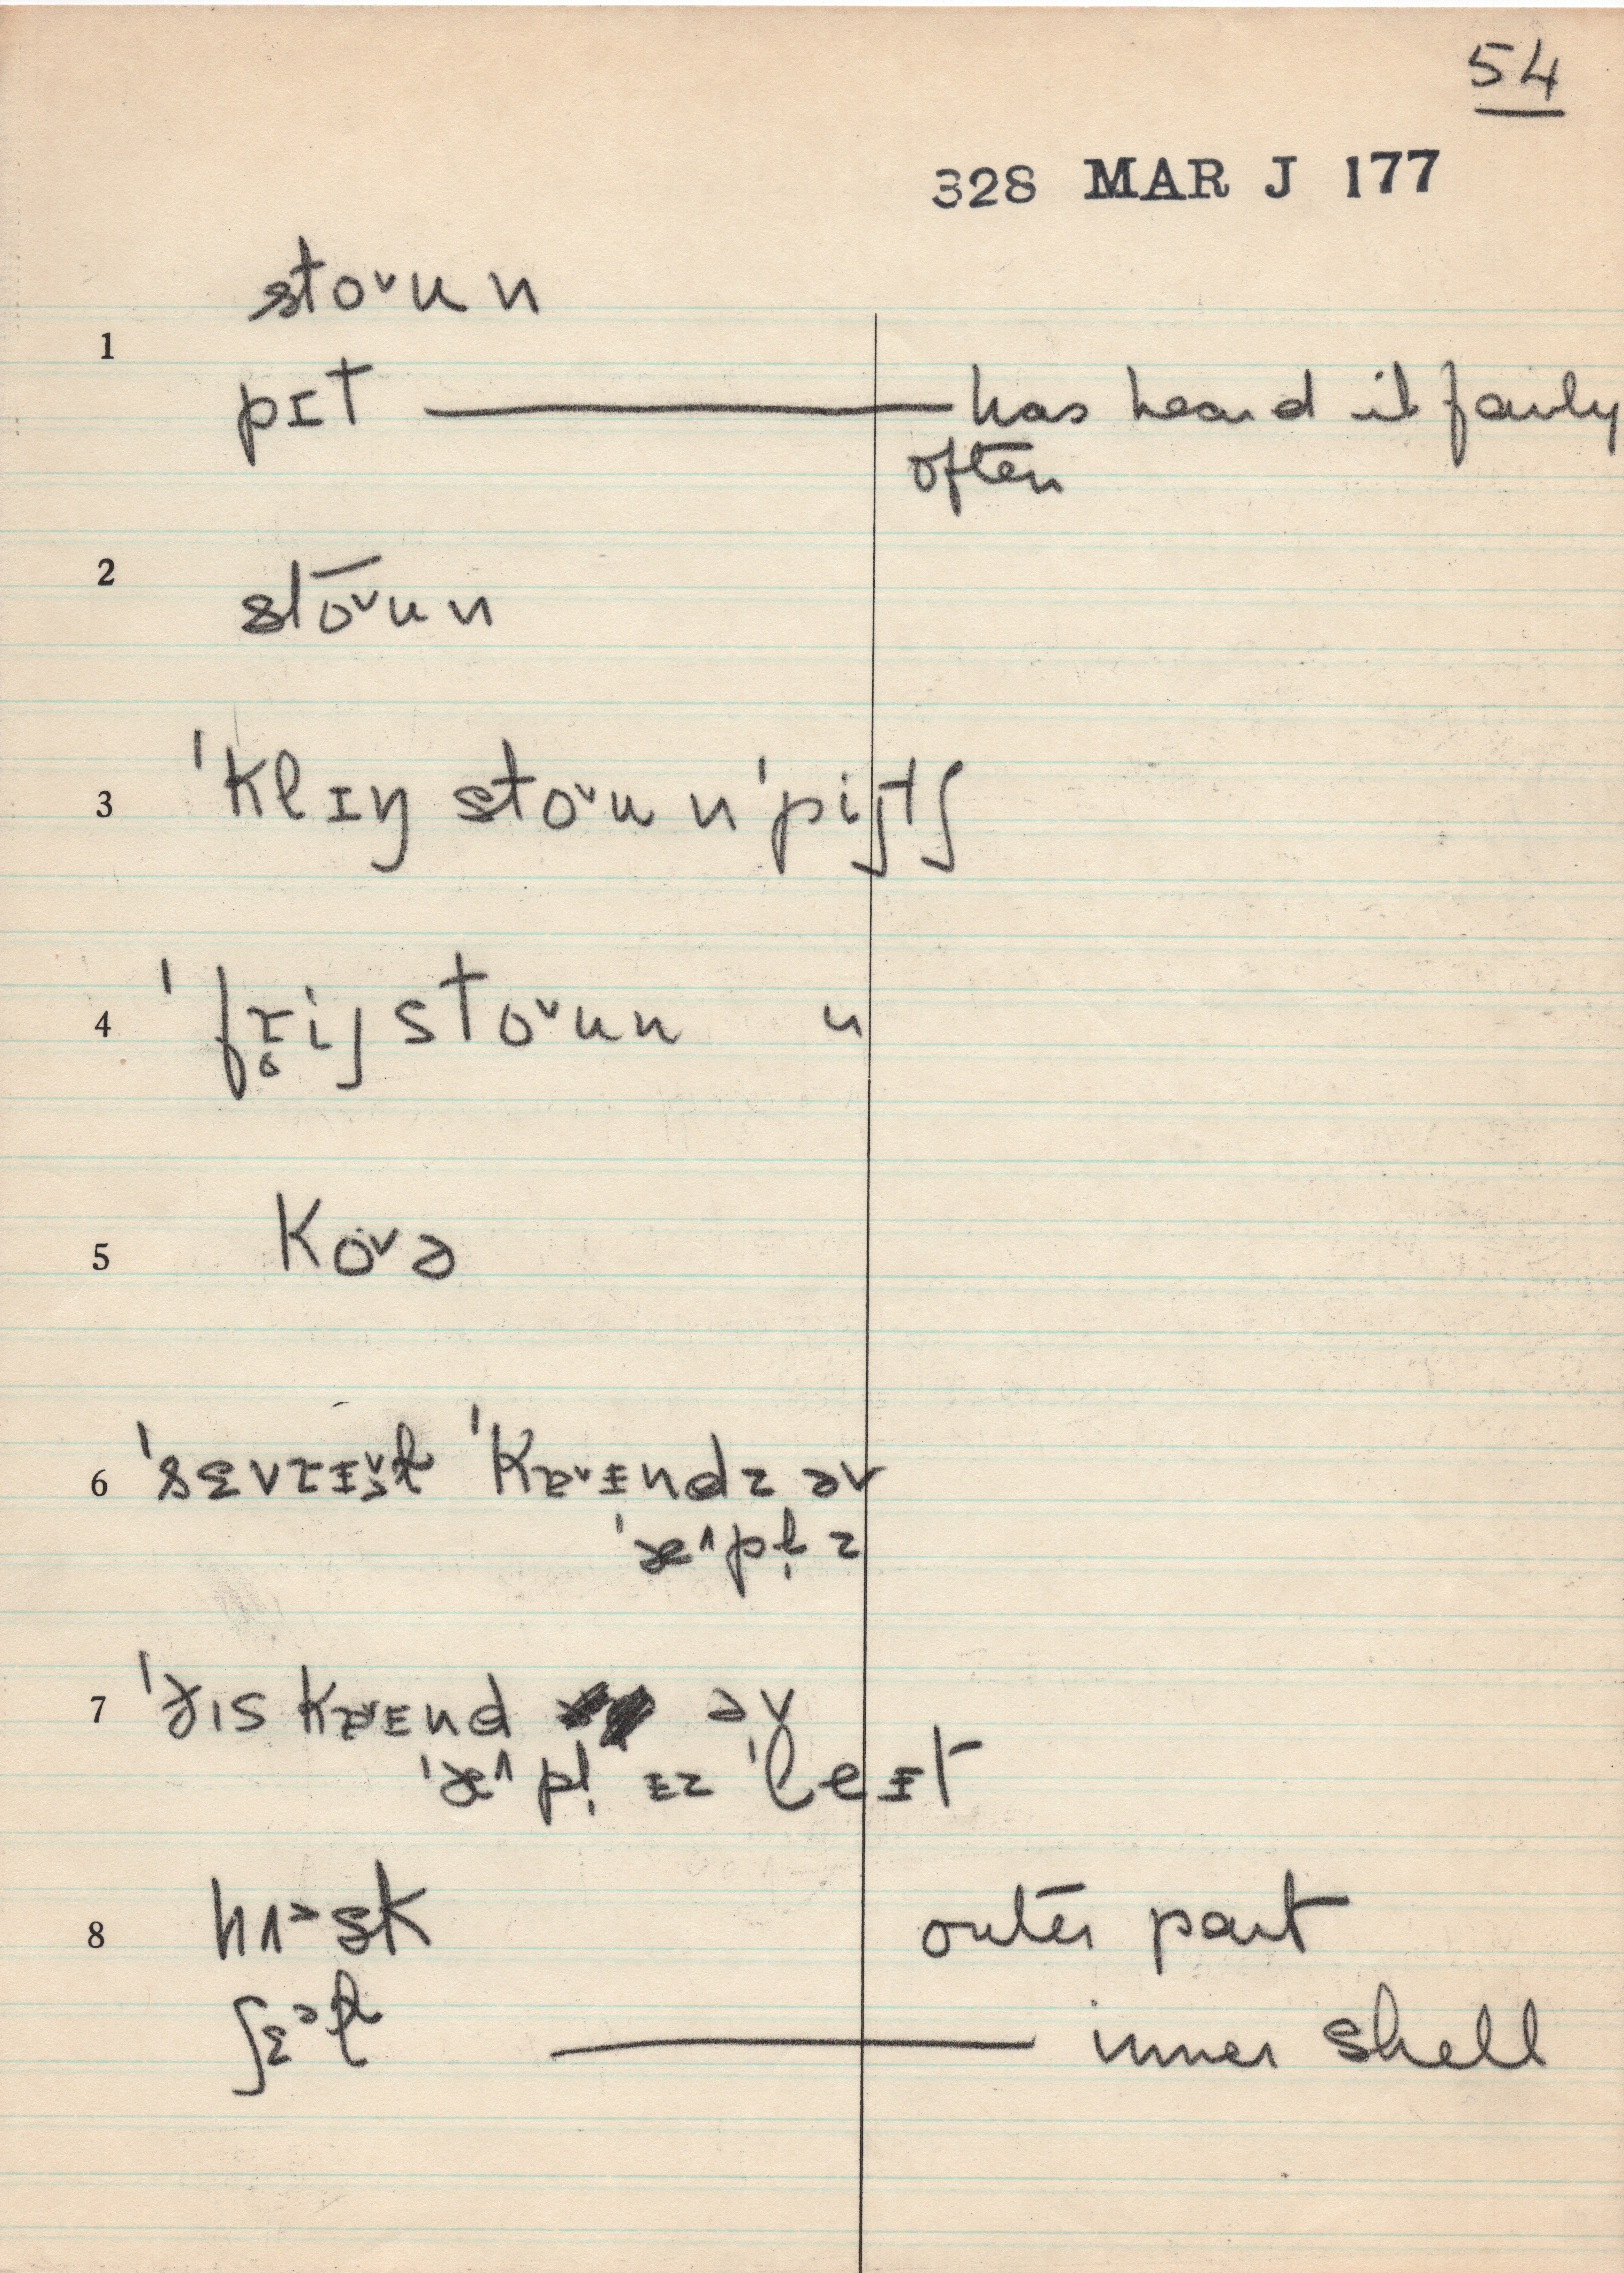 54
328 MAR J 177
1
stoᵛun
pɪt — has heard it fairly
often
2
stoᵛun
3
ˈklɪŋ stoᵛun ˈpijtʃ
4
ˈfɾ̥ij stoᵛun "
5
koᵛə
6
ˈsɛvɾɪᵛɫ ˈkaᵛɪndz əv
ˈæ^pl̩z
7
ˈðɪs kaᵛɪnd əv
ˈæ^pl̩ ɪz ˈleɪt
8
hʌᵊsk outer part
ʃɛᵊɫ — inner shell